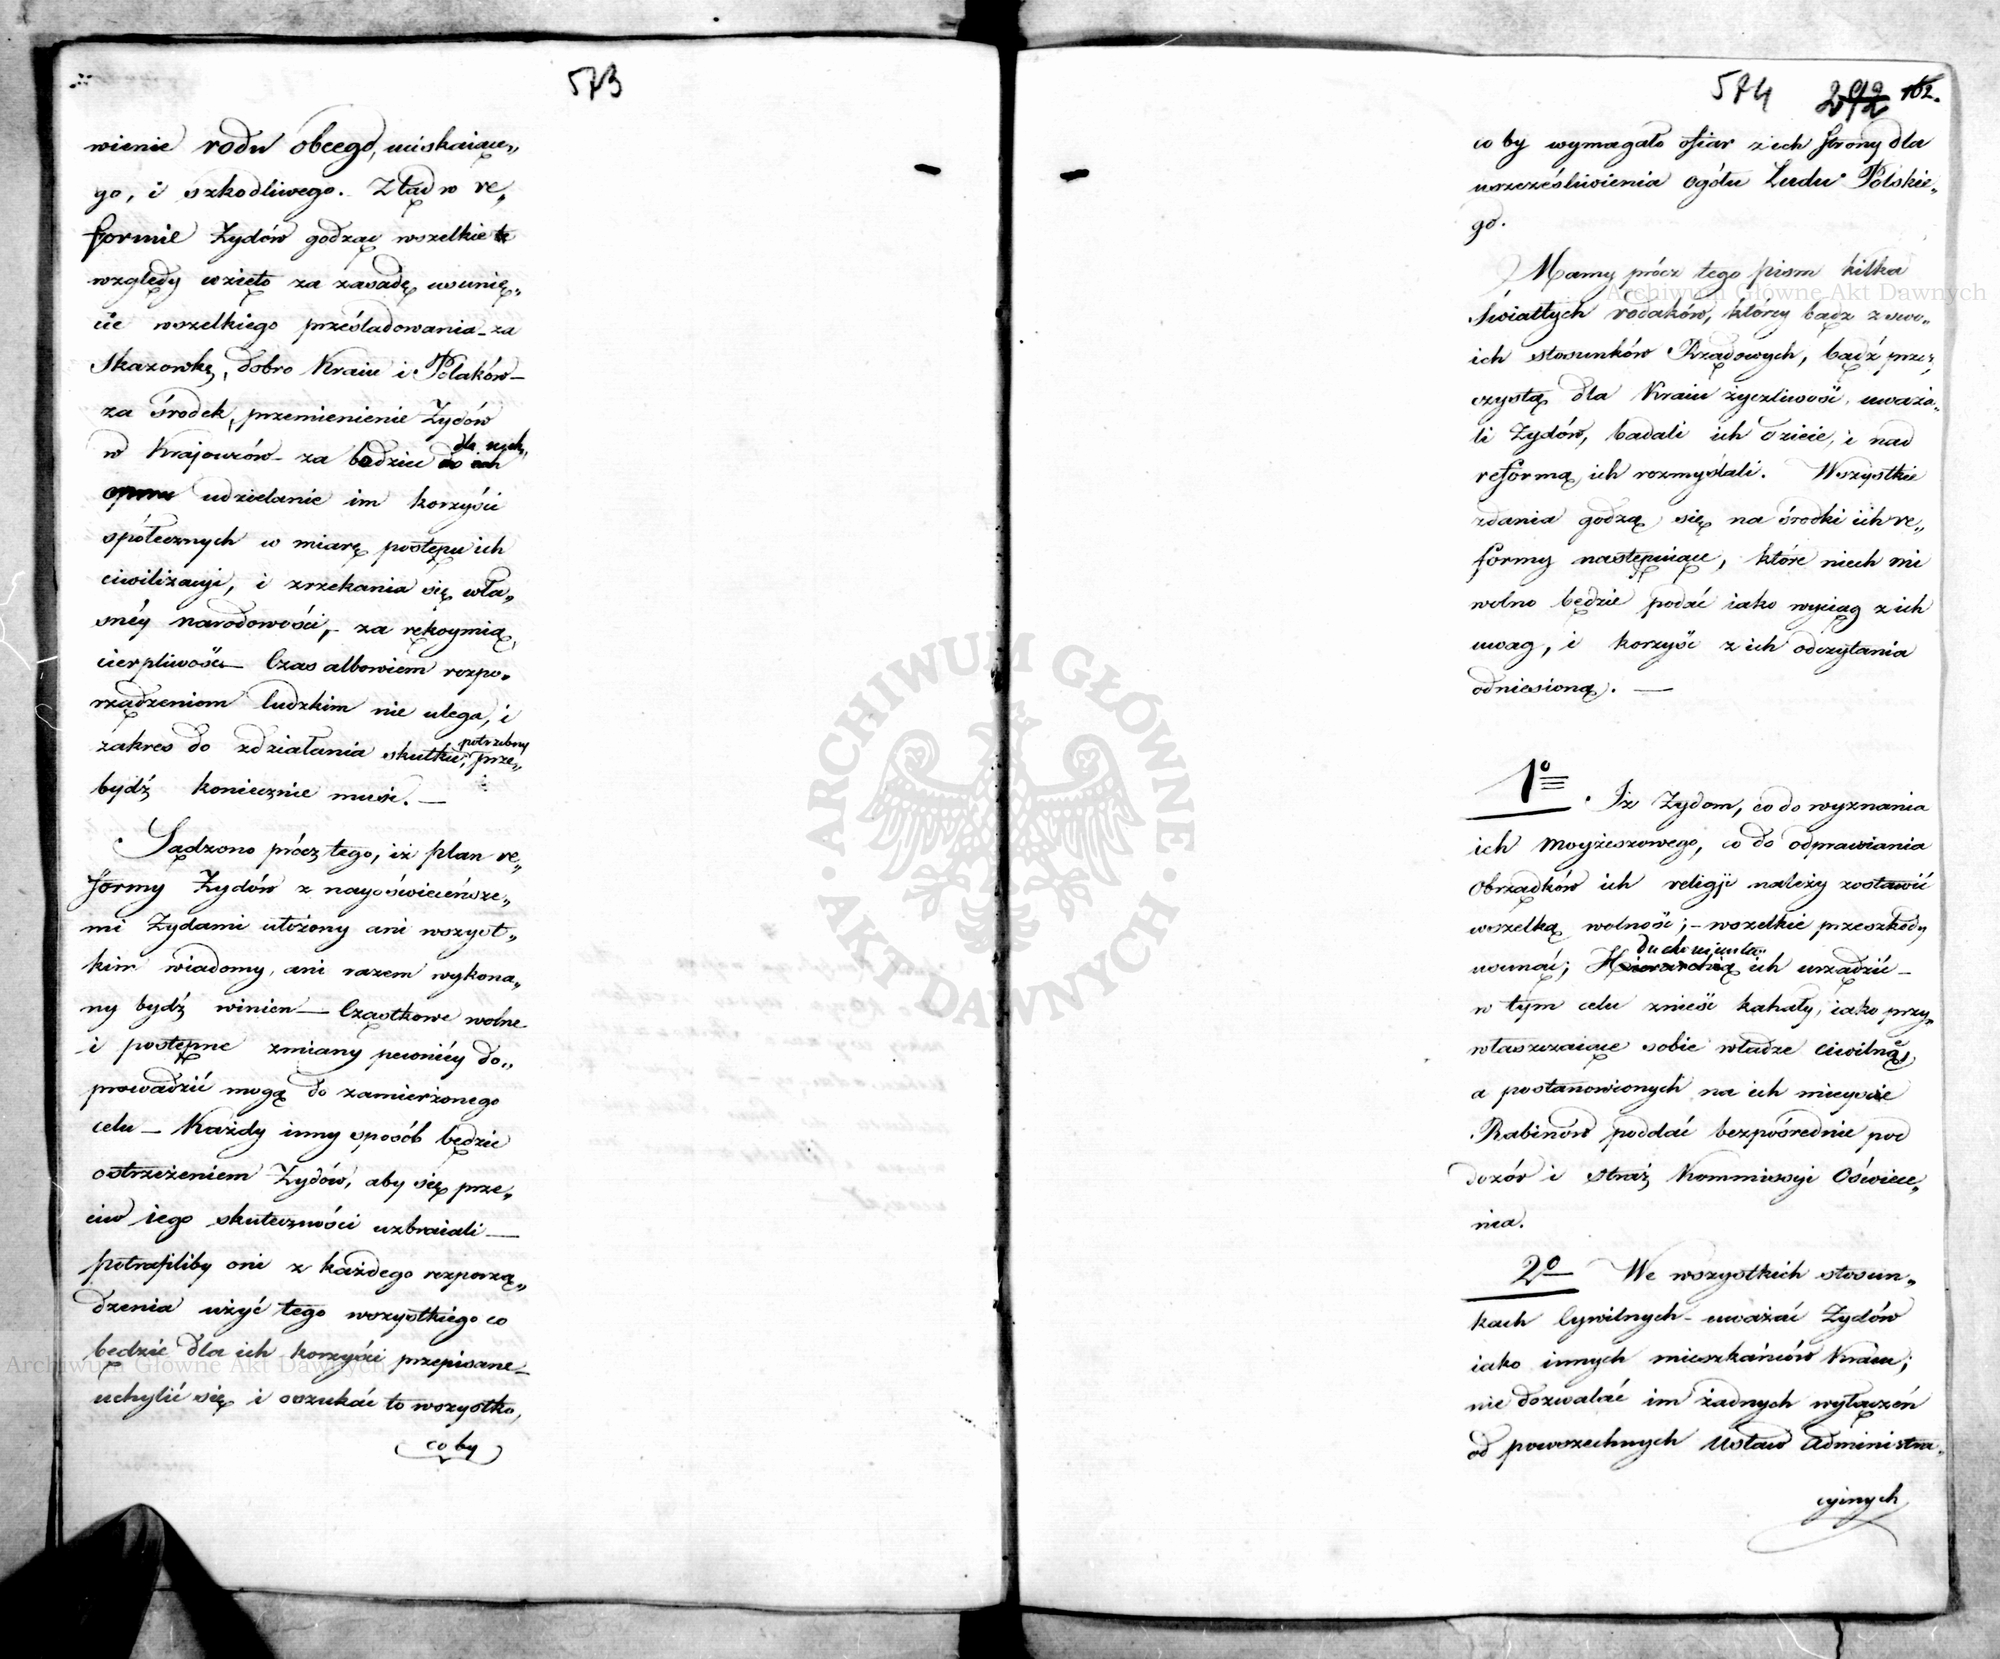 573
wienie rodu obcego, uciskaiące„
go, i szkodliwego. Ztąd w re„
formie Żydów godząc wszelkie
względy wzięto za zasadę, usunię„
cie wszelkiego prześladowania – za
Skazowkę, dobro Kraiu i Polaków –
za środek, przemienienie Żydów
dla nych,
w Krajowców – za bodziec
udzielanie im korzyści
społecznych w miarę postępu ich
ciwilizacyi, i zrzekania się wła„
snéy narodowości, – za rękoymią,
cierpliwość – Czas albowiem rozpo„
rządzeniom ludzkim nie ulega, i
potrzebny
zakres do zdziałania skutku, prze„
bydź koniecznie musi. —
Sądzono prócz tego, iż plan re„
formy Żydów z nayoświeceńsze„
mi Żydami ułożony ani wszyst„
kim wiadomy, ani razem wykona„
ny bydź winien — Cząstkowe wolne
i postępne zmiany pewniéy do„
prowadzić mogą do zamierzonego
celu – Każdy inny sposób będzie
ostrzeżeniem Żydów, aby się prze„
ciw iego skuteczności uzbraiali —
potrafiliby oni z każdego rozporzą„
dzenia użyć tego wszystkiego co
będzie dla ich korzyści przepisane –
uchylić się i oszukać to wszystko,
co by
574 292 162.
co by wymagało ofiar z ich strony dla
uszcześliwienia ogółu Ludu Polskie„
go.
Mamy prócz tego pism kilka
Światłych rodaków, którzy bądz z swo„
ich stosunków Rządowych, bądź prze„
czystą dla Kraiu życzliwość, uważa„
li Żydów, badali ich życie, i nad
reformą ich rozmyślali. Wszystkie
zdania godzą się na środki ich re„
formy następuiące, które niech mi
wolno będzie podać iako wyciąg z ich
uwag, i korzyść z ich odczytania
odniesioną. —
1º . Iż Żydom, co do wyznania
ich Moyżeszowego, co do odprawiania
Obrządków ich religji należy zostawić
wszelką wolność; – wszelkie przeszkody
duchowieństwo
usunąć; Hierarchią ich urządzić –
w tym celu znieść kahały, iako przy„
własczaiące sobie władze ciwilne,
a postanowionych na ich mieysce
Rabinów poddać bezpośrednie pod
dozór i straż Kommissyi Oświece„
nia.
2º We wszystkich stosun„
kach Cywilnych – uważać Żydów
iako innych mieszkańców Kraiu;
nie dozwalać im żadnych wyłączeń
od powszechnych Ustaw Administra„
cyinych
Archiwum Główne Akt Dawnych
Archiwum Główne Akt Dawnych
· ARCHIWUM GŁÓWNE · AKT DAWNYCH